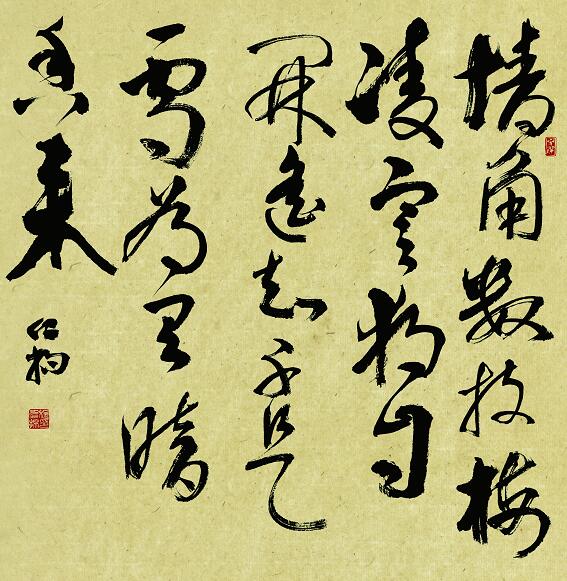 墙角数枝梅
凌寒独自
開遥知不是
雪为有暗
香来